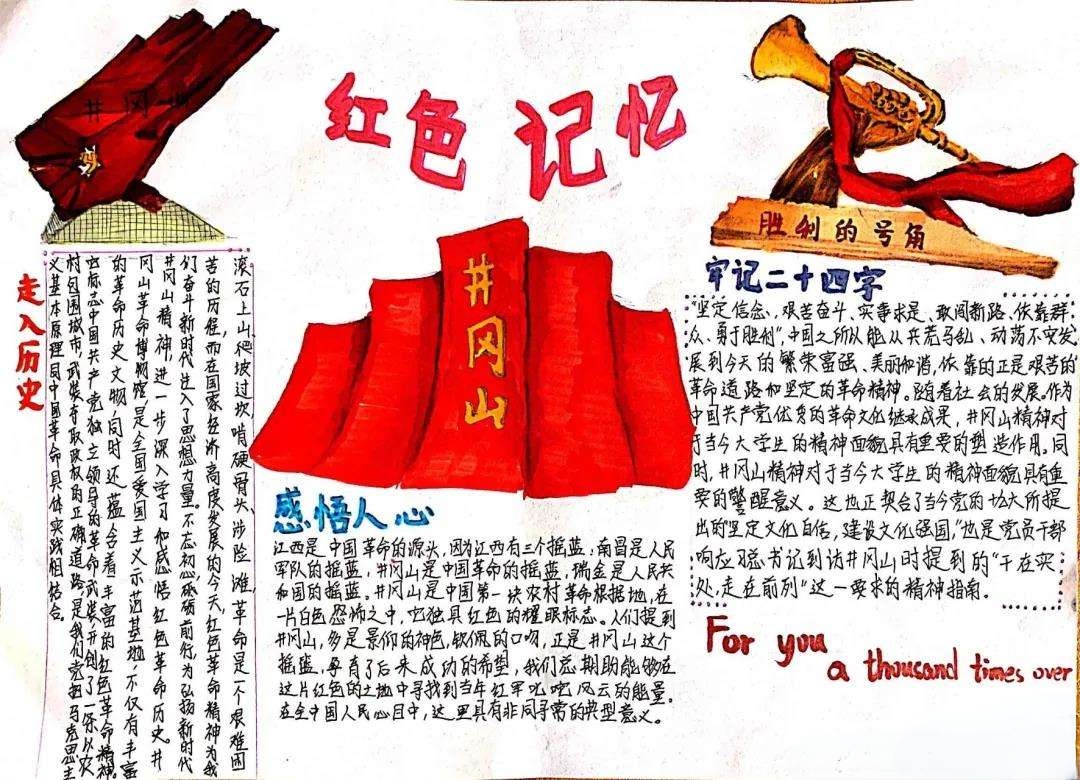 井冈山
红色记忆
胜利的号角
井冈山
走入历史
滚石上山、爬坡过坎、啃硬骨头、涉险滩,革命是一个艰难困
苦的历程,而在国家经济高度发展的今天,红色革命精神为我
们奋斗新时代注入了思想力量。不忘初心,砥砺前行,为弘扬新时代
井冈山精神,进一步深入学习和感悟红色革命历史。井
冈山革命博物馆是全国爱国主义示范基地,不仅有丰富
的革命历史文物,同时还蕴含着丰富的红色革命精神。
它标志中国共产党独立领导的革命武装,开创了一条从农
村包围城市,武装夺取政权的正确道路,是我们党把马克思主
义基本原理同中国革命具体实践相结合。
感悟人心
江西是中国革命的源头,因为江西有三个摇蓝,南昌是人民
军队的摇蓝,井冈山是中国革命的摇蓝,瑞金是人民共
和国的摇蓝。井冈山是中国第一块农村革命根据地,在
一片白色恐怖之中,它独具红色的耀眼标志。人们提到
井冈山,多是景仰的神色,钦佩的口吻,正是井冈山这个
摇蓝,孕育了后来成功的希望,我们总期盼能够在
这片红色的土地中寻找到当年红军叱咤风云的能量。
在全中国人民心目中,这里具有非同寻常的典型意义。
牢记二十四字
"坚定信念、艰苦奋斗、实事求是、敢闯新路、依靠群
众、勇于胜利",中国之所以能从兵荒马乱、动荡不安发
展到今天的繁荣富强、美丽和谐,依靠的正是艰苦的
革命道路和坚定的革命精神。随着社会的发展。作为
中国共产党优秀的革命文化继承成果,井冈山精神对
于当今大学生的精神面貌具有重要的塑造作用。同
时,井冈山精神对于当今大学生的精神面貌具有重
要的警醒意义。这也正契合了当今党的十九大所提
出的坚定文化自信,建设文化强国,"也是党员干部
响应习总书记到访井冈山时提到的"干在实
处,走在前列"这一要求的精神指南。
For you
a thousand times over